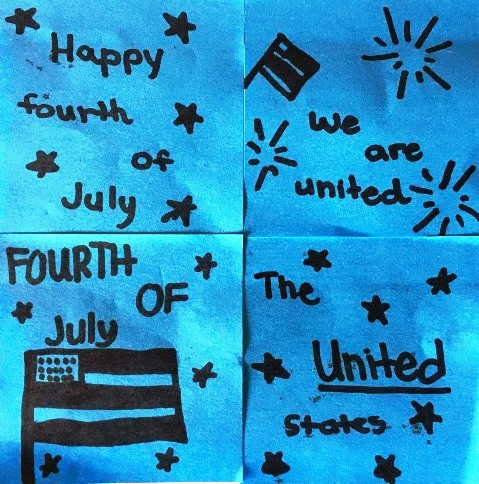 Happy
fourth
of
July
We
are
united
FOURTH
OF
July
The
United
states